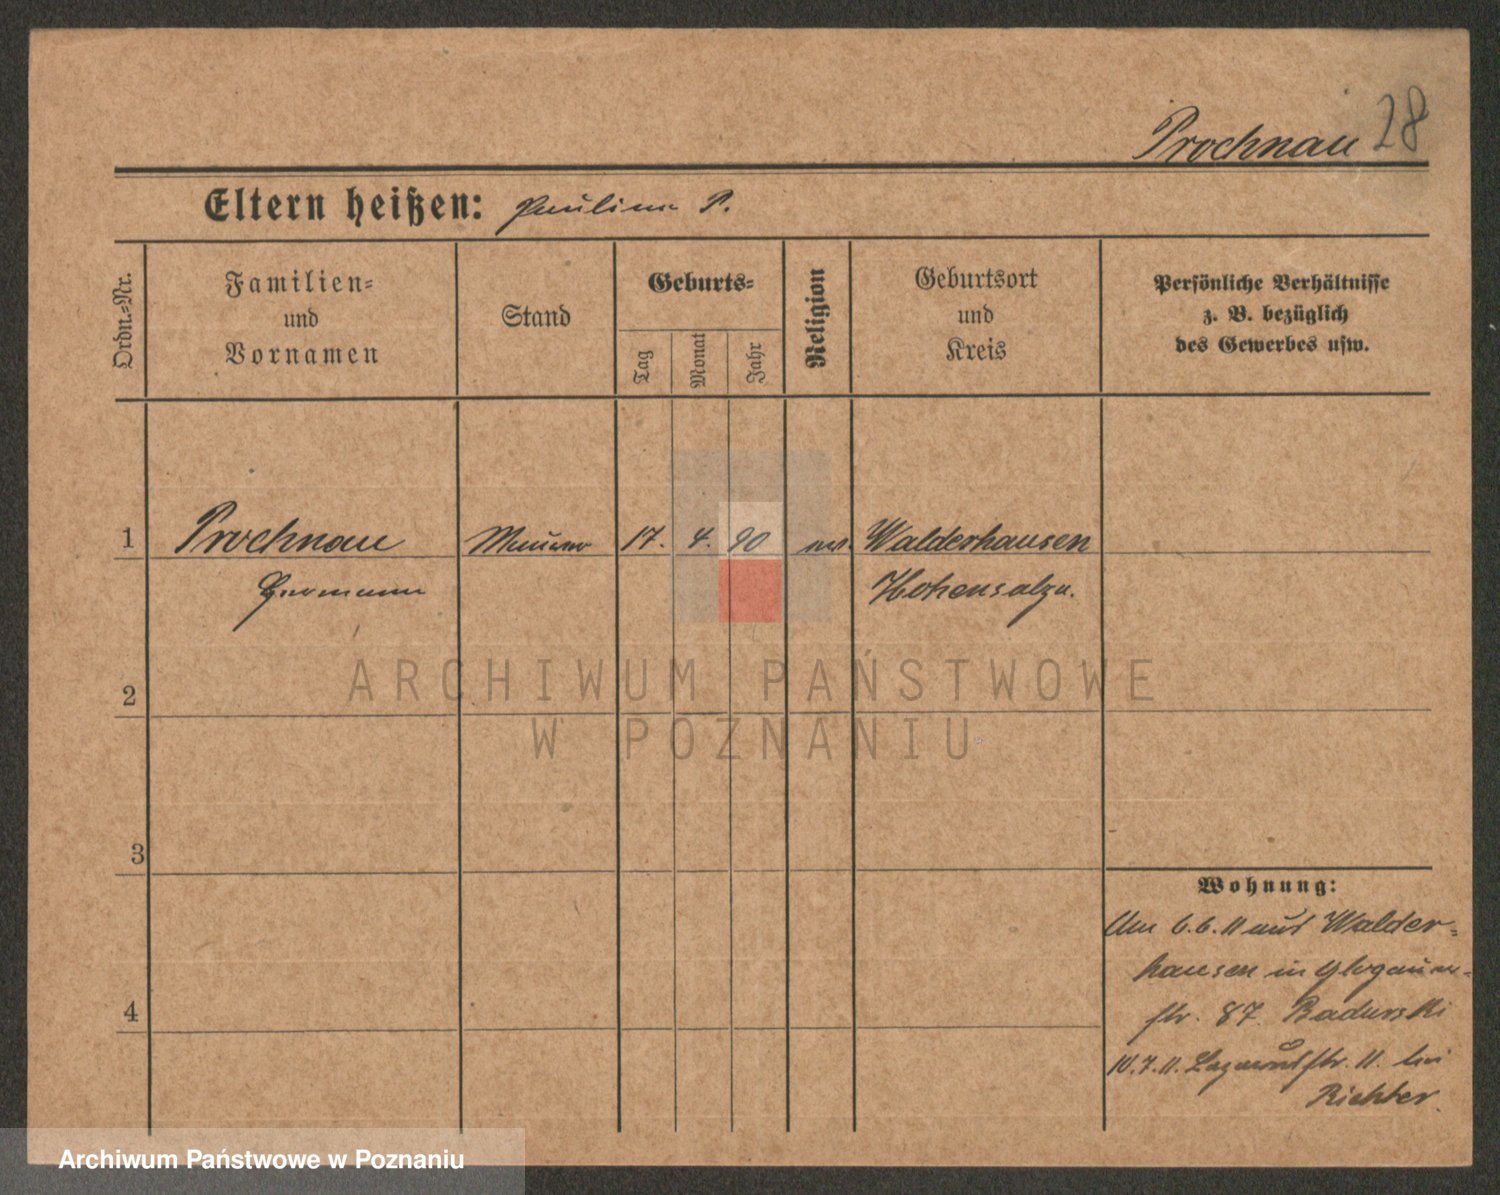 Prochnau 28
Eltern heißen: Pauline P.
Ordn.-Nr.
Familien-
und
Vornamen
Stand
Geburts-
Tag
Monat
Jahr
Religion
Geburtsort
und
Kreis
Persönliche Verhältnisse
z. B. bezüglich
des Gewerbes usw.
1 Prochnau Maurer 17. 4. 90 ev. Walderhausen
Hermann Hohensalza.
ARCHIWUM PAŃSTWOWE
W POZNANIU
2
3
4
Wohnung:
Am 6.6.11 aus Walder-
hausen in Glogauer-
str. 87. Badurski
10.7.11. Lazarusstr. 11. bei
Richter.
Archiwum Państwowe w Poznaniu